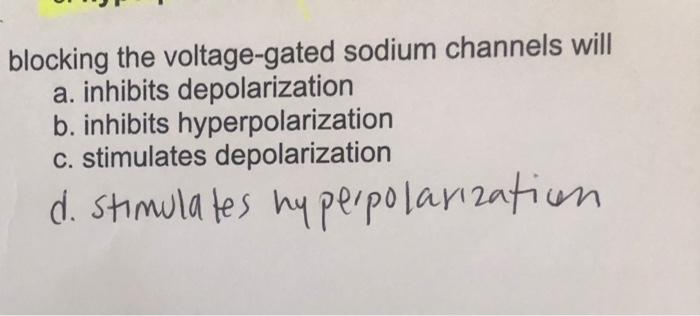 blocking the voltage-gated sodium channels will
a. inhibits depolarization
b. inhibits hyperpolarization
c. stimulates depolarization
d. stimulates hyperpolarization